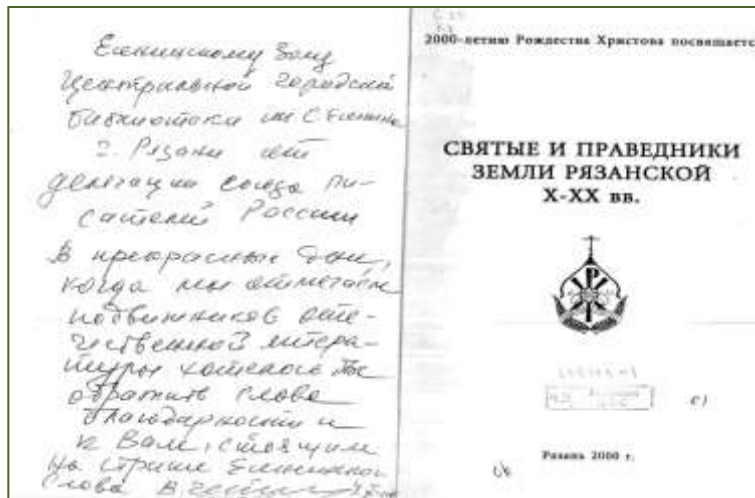 Есенинскому залу
Центральной городской
библиотеки им С Есенина
г. Рязани от
делегации союза пи-
сателей России
В прекрасные дни,
когда мы отмечаем
подвижников оте-
чественной литера-
туры хотелось бы
обратить слова
благодарности и
к Вам, стоящим
на страже Есенинского
слова В.
2000-летию Рождества Христова посвящается
СВЯТЫЕ И ПРАВЕДНИКИ
ЗЕМЛИ РЯЗАНСКОЙ
X-XX вв.
Рязань 2000 г.